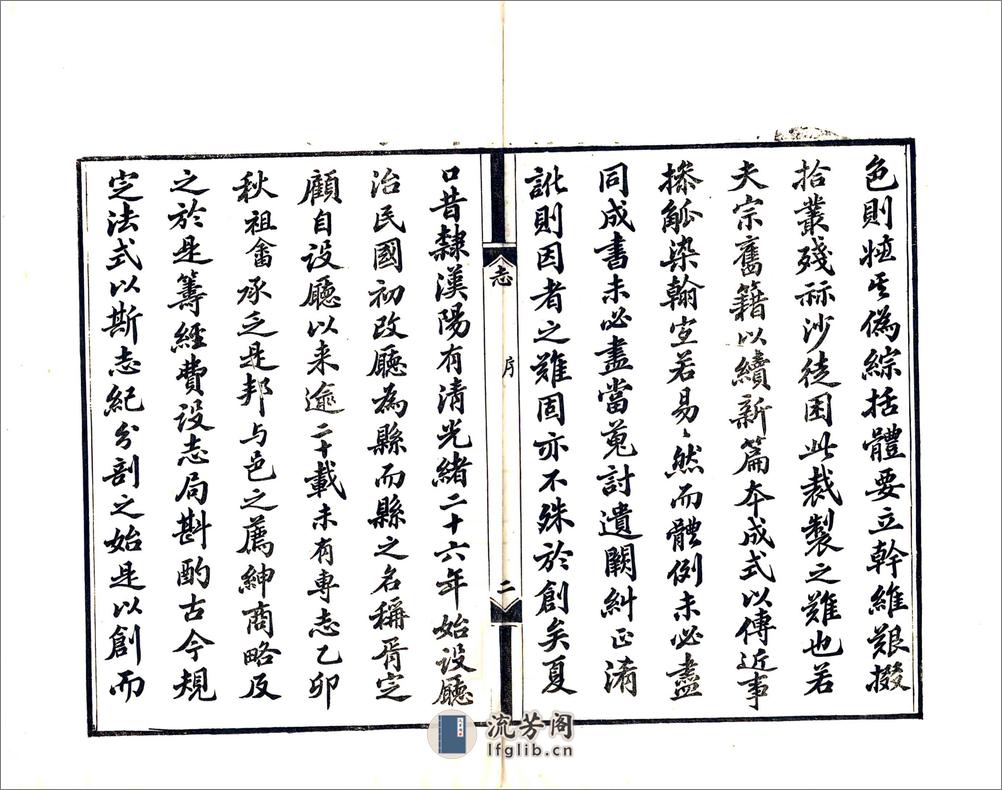 色則恠其偽綜括體要立幹維艱掇
拾叢殘祘沙徒困此裁製之難也若
夫宗舊籍以續新篇本成式以傳近事
搽觚染翰宜若易〻然而體例未必盡
同成書未必盡當蒐討遺闕糾正淆
訛則因者之難固亦不殊於創矣夏
志
序
二
口昔隸漢陽有清光緒二十六年始設廳
治民國初改廳為縣而縣之名稱胥定
顧自設廳以来逾二十載未有專志乙卯
秋祖畬承乏是邦与邑之薦紳商略及
之於是籌經費設志局斟酌古今規
定法式以斯志紀分剖之始是以創而
流芳阁
lfglib.cn